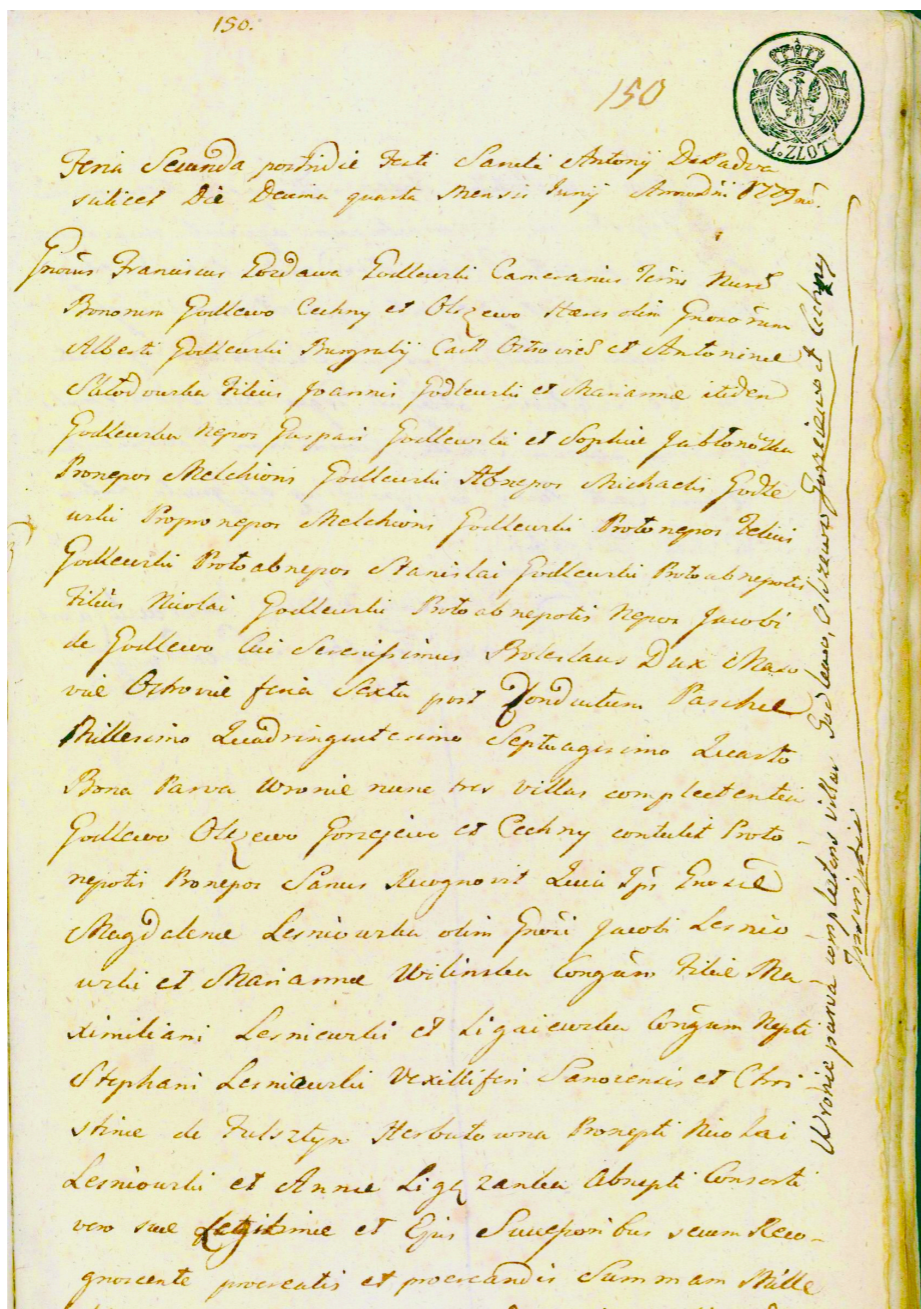 150.
150
1. ZŁOTY
Feria Secunda postridie Festi Sancti Antonij De Padva
scilicet Die Decima quarta Mensis Junij Anno Dni 1779no.
Gnosus Franciscus Gozdawa Godlewski Camerarius Terris Nurs
Bonorum Godlewo Cechny et Olszewo Haeres olim Gnosorum
Alberti Godlewski Burgrabij Cast Ostrovien et Antoninae
Skłodowska Filius Joannis Godlewski et Mariannae itidem
Godlewska Nepos Gaspari Godlewski et Sophiae Jabłonoska
Pronepos Melchioris Godlewski Abnepos Michaelis Godle
wski Propronepos Melchioris Godlewski Protonepos Felicis
Godlewski Protoabnepos Stanislai Godlewski Protoabnepotis
Filius Nicolai Godlewski Protoabnepotis Nepos Jacobi
de Godlewo Cui Serenissimus Boleslaus Dux Maso
viae Ostroviae feria Sexta post Conductum Paschae
Millesimo Quadringentesimo Septuagesimo Quarto
Bona Parva Wronie nunc tres villas complectentia
Godlewo Olszewo Gorzejewo et Cechny contulit Proto-
nepotis Pronepos Sanus Recognovit Quia Ips Gnosae
Magdalenae Lesniowska olim Gnosi Jacobi Lesnio-
wski et Mariannae Wilinska Congum Filiae Ma-
ximiliani Lesniewski et Ligaiewska Congum Nepti
Stephani Lesniewski Vexilliferi Sanocensis et Chri-
stinae de Fulsztyn Herbutowna Pronepti Nicolai
Lesniowski et Annae Ligęzanka Abnepti Consorti
vero suae Legitimae et Ejus Successoribus secum Reco-
gnoscente procreatis et procreandis Summam Mille
Wronie parva complectens villas Godlewo, Olszewo Gorzeiewo et Cechny